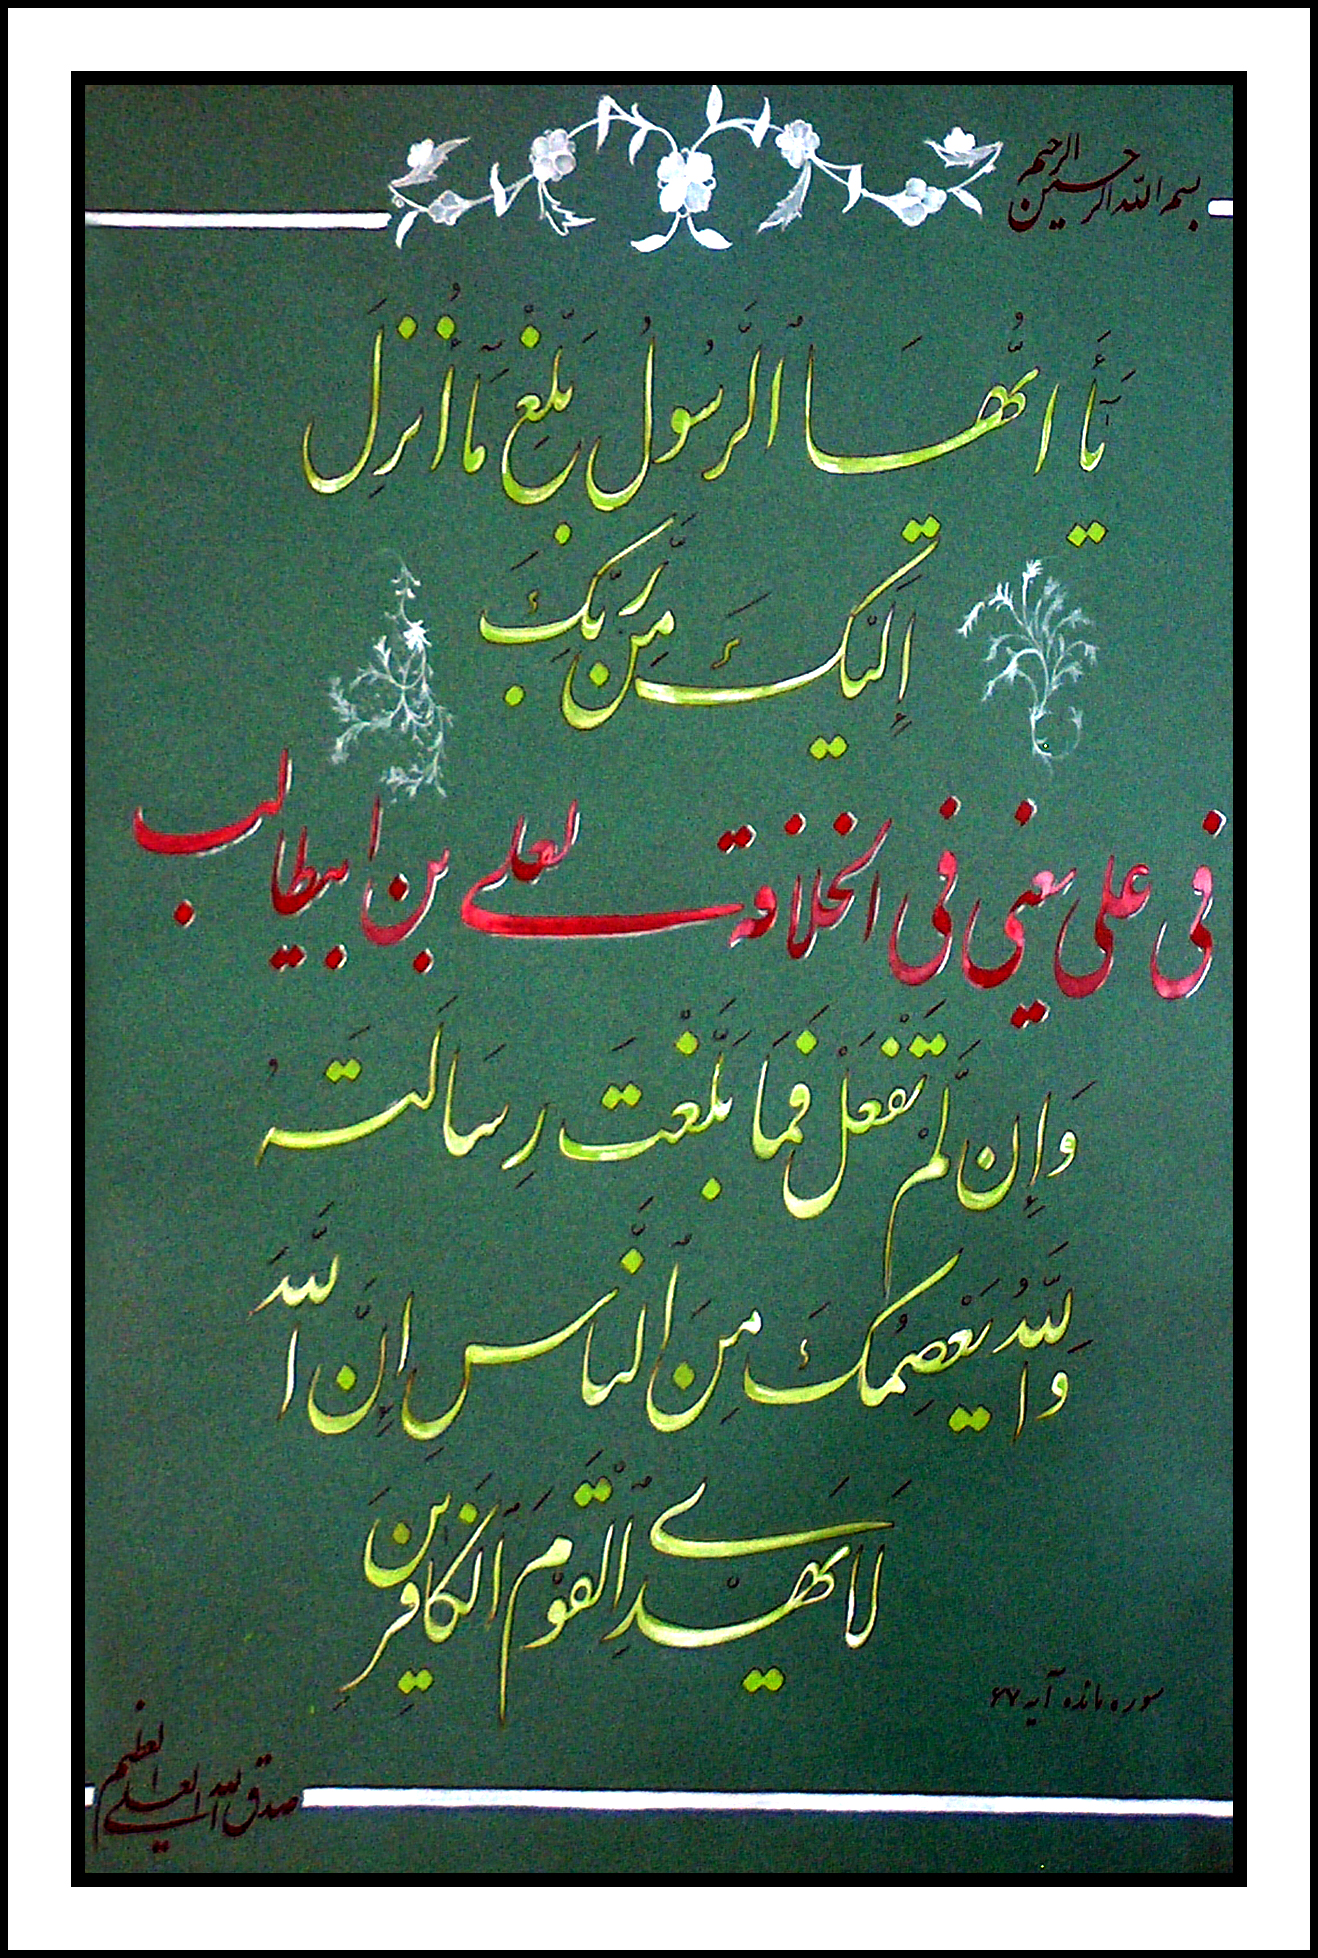 بسم الله الرحمن الرحیم
يَا أَيُّهَا ٱلرَّسُولُ بَلِّغْ مَآ أُنزِلَ
إِلَيْكَ مِن رَّبِّكَ
فی علی یعنی فی الخلافة لعلی بن ابیطالب
وَإِن لَّمْ تَفْعَلْ فَمَا بَلَّغْتَ رِسَالَتَهُ
وَاللَّهُ يَعْصِمُكَ مِنَ ٱلنَّاسِ إِنَّ اللَّهَ
لَا يَهْدِی ٱلْقَوْمَ ٱلْكَافِرِينَ
سوره مائده آیه ۶۷
صدق الله العلی العظیم